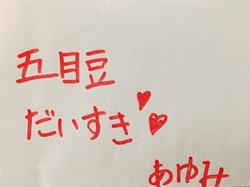 五目豆
だいすき♥♥
あゆみ